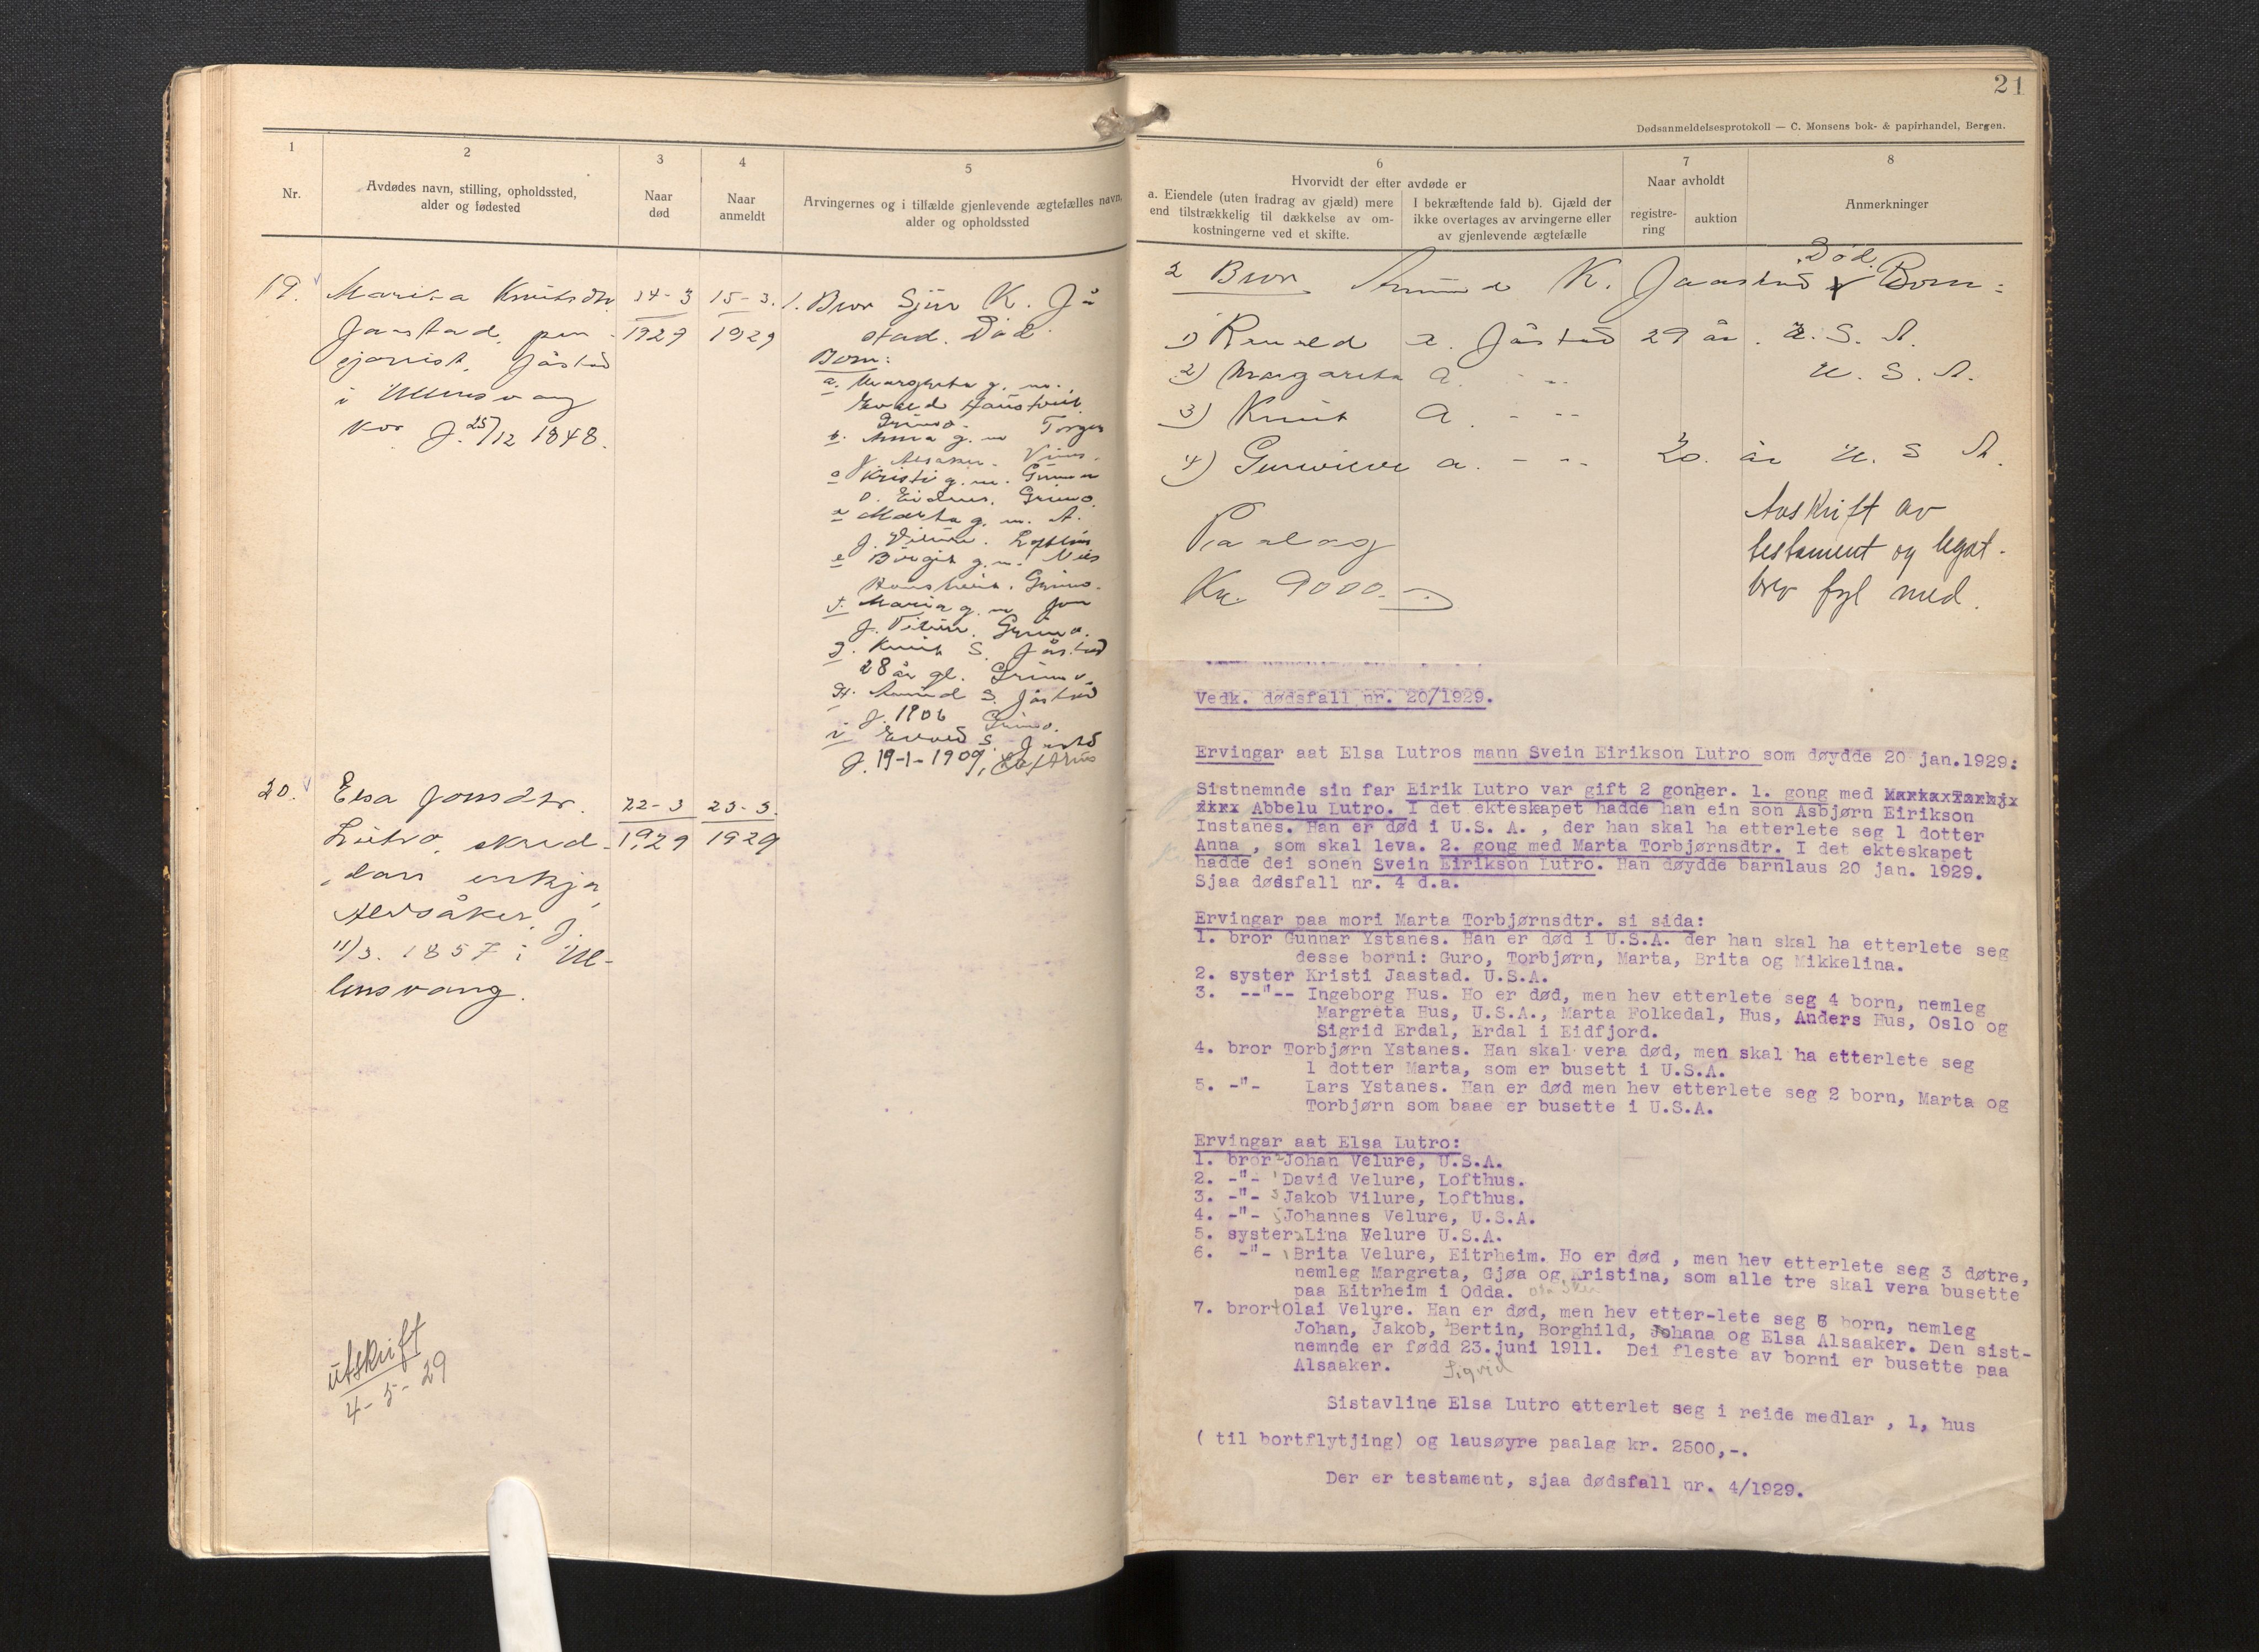 21
Dødsanmeldelsesprotokoll — C. Monsens bok- & papirhandel, Bergen.
1
Nr.
2
Avdødes navn, stilling, opholdssted,
alder og fødested
3
Naar
død
4
Naar
anmeldt
5
Arvingernes og i tilfælde gjenlevende ægtefælles navn,
alder og opholdssted
6
Hvorvidt der efter avdøde er
a. Eiendele (uten fradrag av gjæld) mere
end tilstrækkelig til dækkelse av om-
kostningerne ved et skifte.
I bekræftende fald b). Gjæld der
ikke overtages av arvingerne eller
av gjenlevende ægtefælle
7
Naar avholdt
registre-
ring
auktion
8
Anmerkninger
19.
Marita Knutsdtr.
Jaastad, pen-
sjonist, Jåstad
i Ullensvang
f. 25/12 1848.
14-3
1929
15-3.
1929
1. Bror Sjur K. Jå-
stad. Død.
Born:
a. Margreta g. m.
b. Anna g. m. Torger
c Kristi g. m. Gunnar
O. Eidnes. Grimo.
d Marta g. m. A.
J. Vilure. Lofthus
e Børgit g. m. Nils
f. Maria g. m. Jon
J. Vilure. Grimo.
g. Knut S. Jåstad
28 år gl. Grimo.
H. Amund S. Jåstad
f. 1906 Grimo.
i S. Jåstad
f. 19-1-1909,
2 Bror Amund K. Jaastad Død. Born:
1) a. Jåstad 29 år. U. S. A.
2) Margareta a. - -- U. S. A.
3) Knut a. - --
4) a. - -- 20. år U. S A.
Paalag
Kr. 9000.-
Avskrift av
testament og legat-
brev fyl med.
20.
Elsa Jonsdtr.
Lutro, skred-
dar enkja,
Alsåker, f.
11/3. 1857 i Ul-
lensvang.
22-3
1929
23-3.
1929
utskrift
4-5-29
Vedk. dødsfall nr. 20/1929.
Ervingar aat Elsa Lutros mann Svein Eirikson Lutro som døydde 20 jan.1929:
Sistnemnde sin far Eirik Lutro var gift 2 gonger. 1. gong med
Abbelu Lutro. I det ekteskapet hadde han ein son Asbjørn Eirikson
Instanes. Han er død i U.S. A. , der han skal ha etterlete seg 1 dotter
Anna , som skal leva. 2. gong med Marta Torbjørnsdtr. I det ekteskapet
hadde dei sonen Svein Eirikson Lutro. Han døydde barnlaus 20 jan. 1929.
Sjaa dødsfall nr. 4 d.a.
Ervingar paa mori Marta Torbjørnsdtr. si sida:
1. bror Gunnar Ystanes. Han er død i U.S.A. der han skal ha etterlete seg
desse borni: Guro, Torbjørn, Marta, Brita og Mikkelina.
2. syster Kristi Jaastad. U.S.A.
3. --"-- Ingeborg Hus. Ho er død, men hev etterlete seg 4 born, nemleg
Margreta Hus, U.S.A., Marta Folkedal, Hus, Anders Hus, Oslo og
Sigrid Erdal, Erdal i Eidfjord.
4. bror Torbjørn Ystanes. Han skal vera død, men skal ha etterlete seg
1 dotter Marta, som er busett i U.S.A.
5. -"- Lars Ystanes. Han er død men hev etterlete seg 2 born, Marta og
Torbjørn som baae er busette i U.S.A.
Ervingar aat Elsa Lutro:
1. bror Johan Velure, U.S.A.
2. -"- David Velure, Lofthus.
3. -"- Jakob Vilure, Lofthus.
4. -"- Johannes Velure, U.S.A.
5. syster Lina Velure U.S.A.
6. -"- Brita Velure, Eitrheim. Ho er død , men hev etterlete seg 3 døtre,
nemleg Margreta, Gjøa og Kristina, som alle tre skal vera busette
paa Eitrheim i Odda.
7. bror Olai Velure. Han er død, men hev etter-lete seg 6 born, nemleg
Johan, Jakob, Bertin, Borghild, Johana og Elsa Alsaaker. Den sist-
nemnde er fødd 23.juni 1911. Dei fleste av borni er busette paa
Alsaaker. Sigvid
Sistavline Elsa Lutro etterlet seg i reide medlar , 1, hus
( til bortflytjing) og lausøyre paalag kr. 2500,-.
Der er testament, sjaa dødsfall nr. 4/1929.